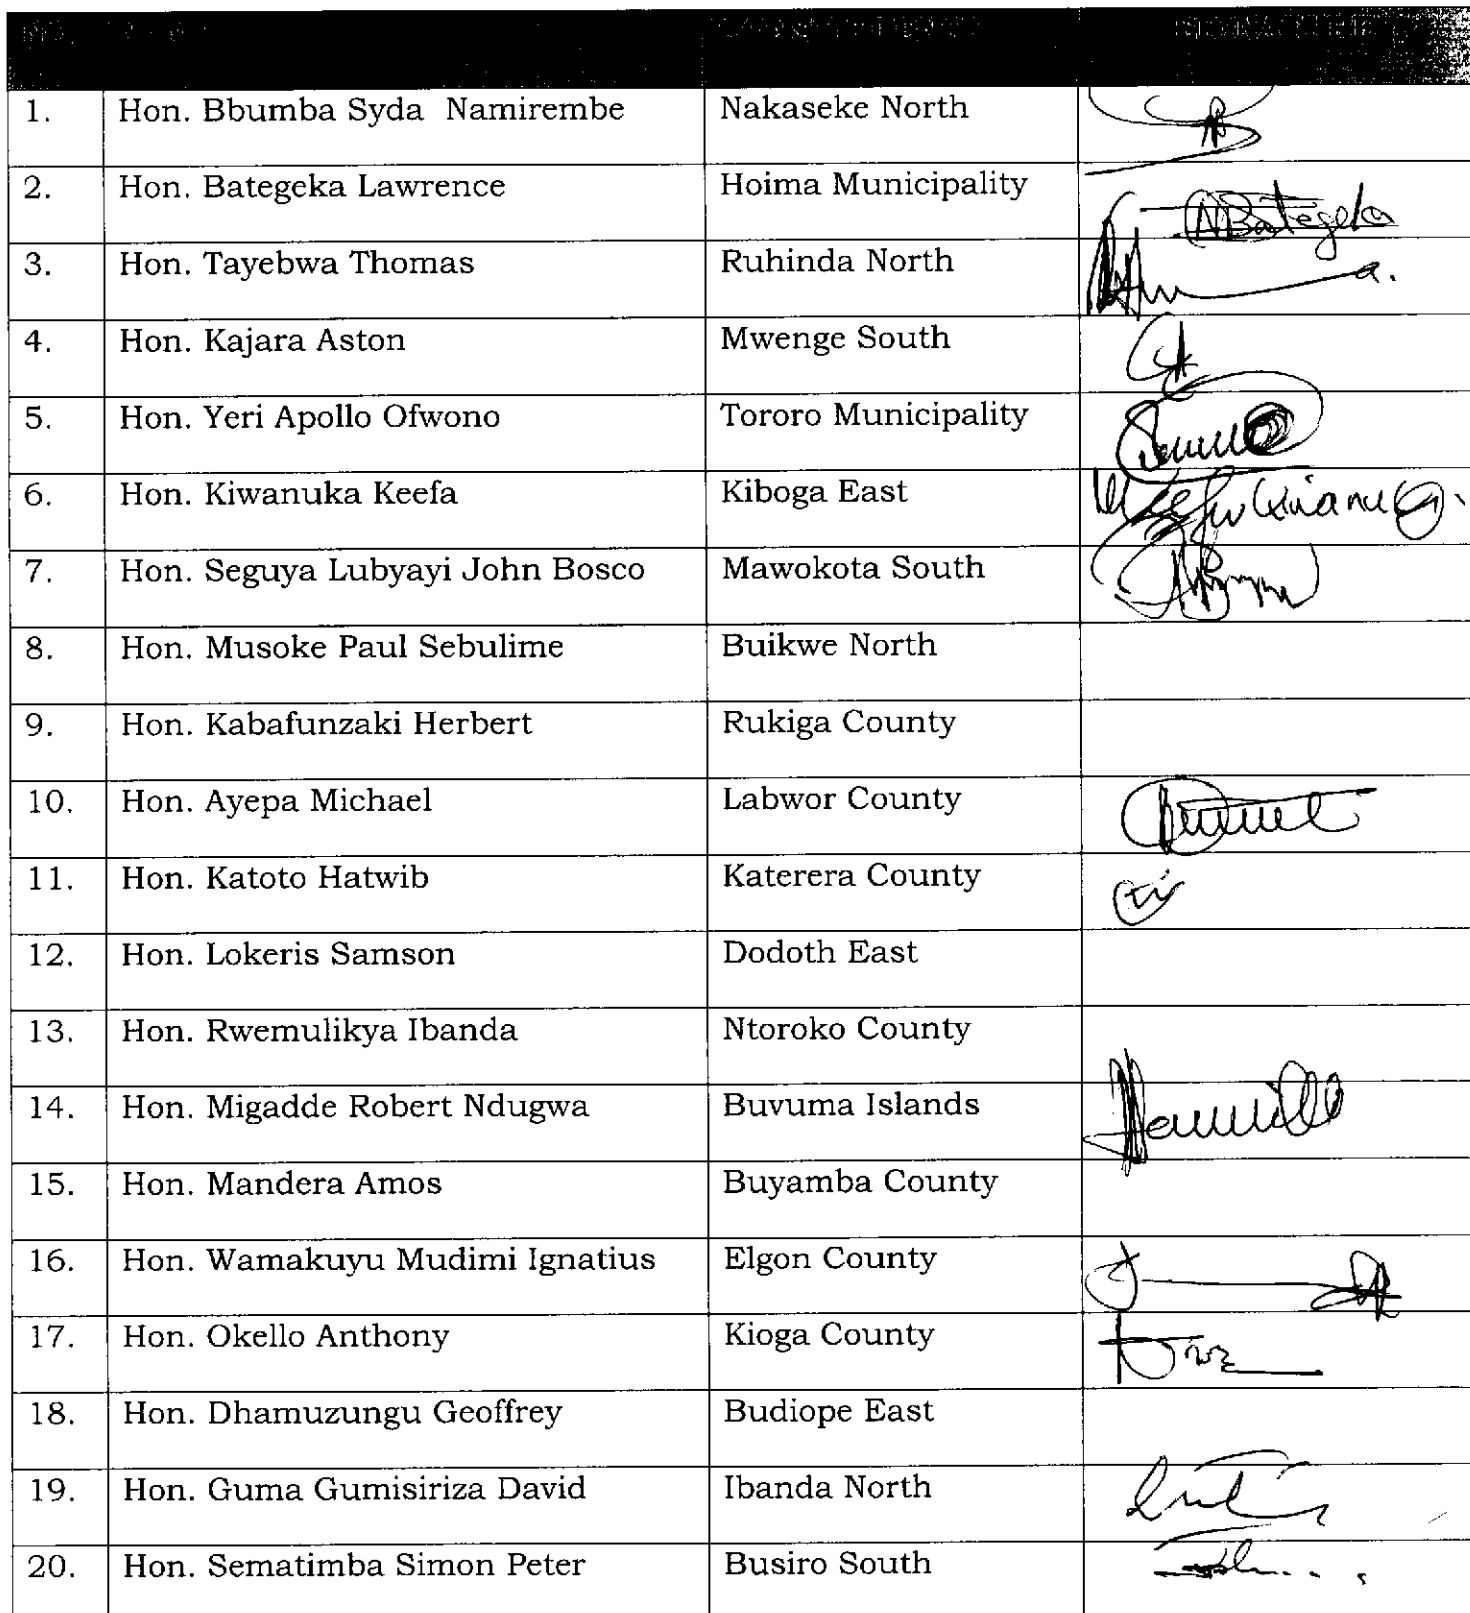 NO. CONSTITUENCY SIGNATURE
1. Hon. Bbumba Syda Namirembe Nakaseke North
2. Hon. Bategeka Lawrence Hoima Municipality NBategeka
3. Hon. Tayebwa Thomas Ruhinda North
4. Hon. Kajara Aston Mwenge South
5. Hon. Yeri Apollo Ofwono Tororo Municipality
6. Hon. Kiwanuka Keefa Kiboga East
7. Hon. Seguya Lubyayi John Bosco Mawokota South
8. Hon. Musoke Paul Sebulime Buikwe North
9. Hon. Kabafunzaki Herbert Rukiga County
10. Hon. Ayepa Michael Labwor County
11. Hon. Katoto Hatwib Katerera County
12. Hon. Lokeris Samson Dodoth East
13. Hon. Rwemulikya Ibanda Ntoroko County
14. Hon. Migadde Robert Ndugwa Buvuma Islands
15. Hon. Mandera Amos Buyamba County
16. Hon. Wamakuyu Mudimi Ignatius Elgon County
17. Hon. Okello Anthony Kioga County
18. Hon. Dhamuzungu Geoffrey Budiope East
19. Hon. Guma Gumisiriza David Ibanda North
20. Hon. Sematimba Simon Peter Busiro South